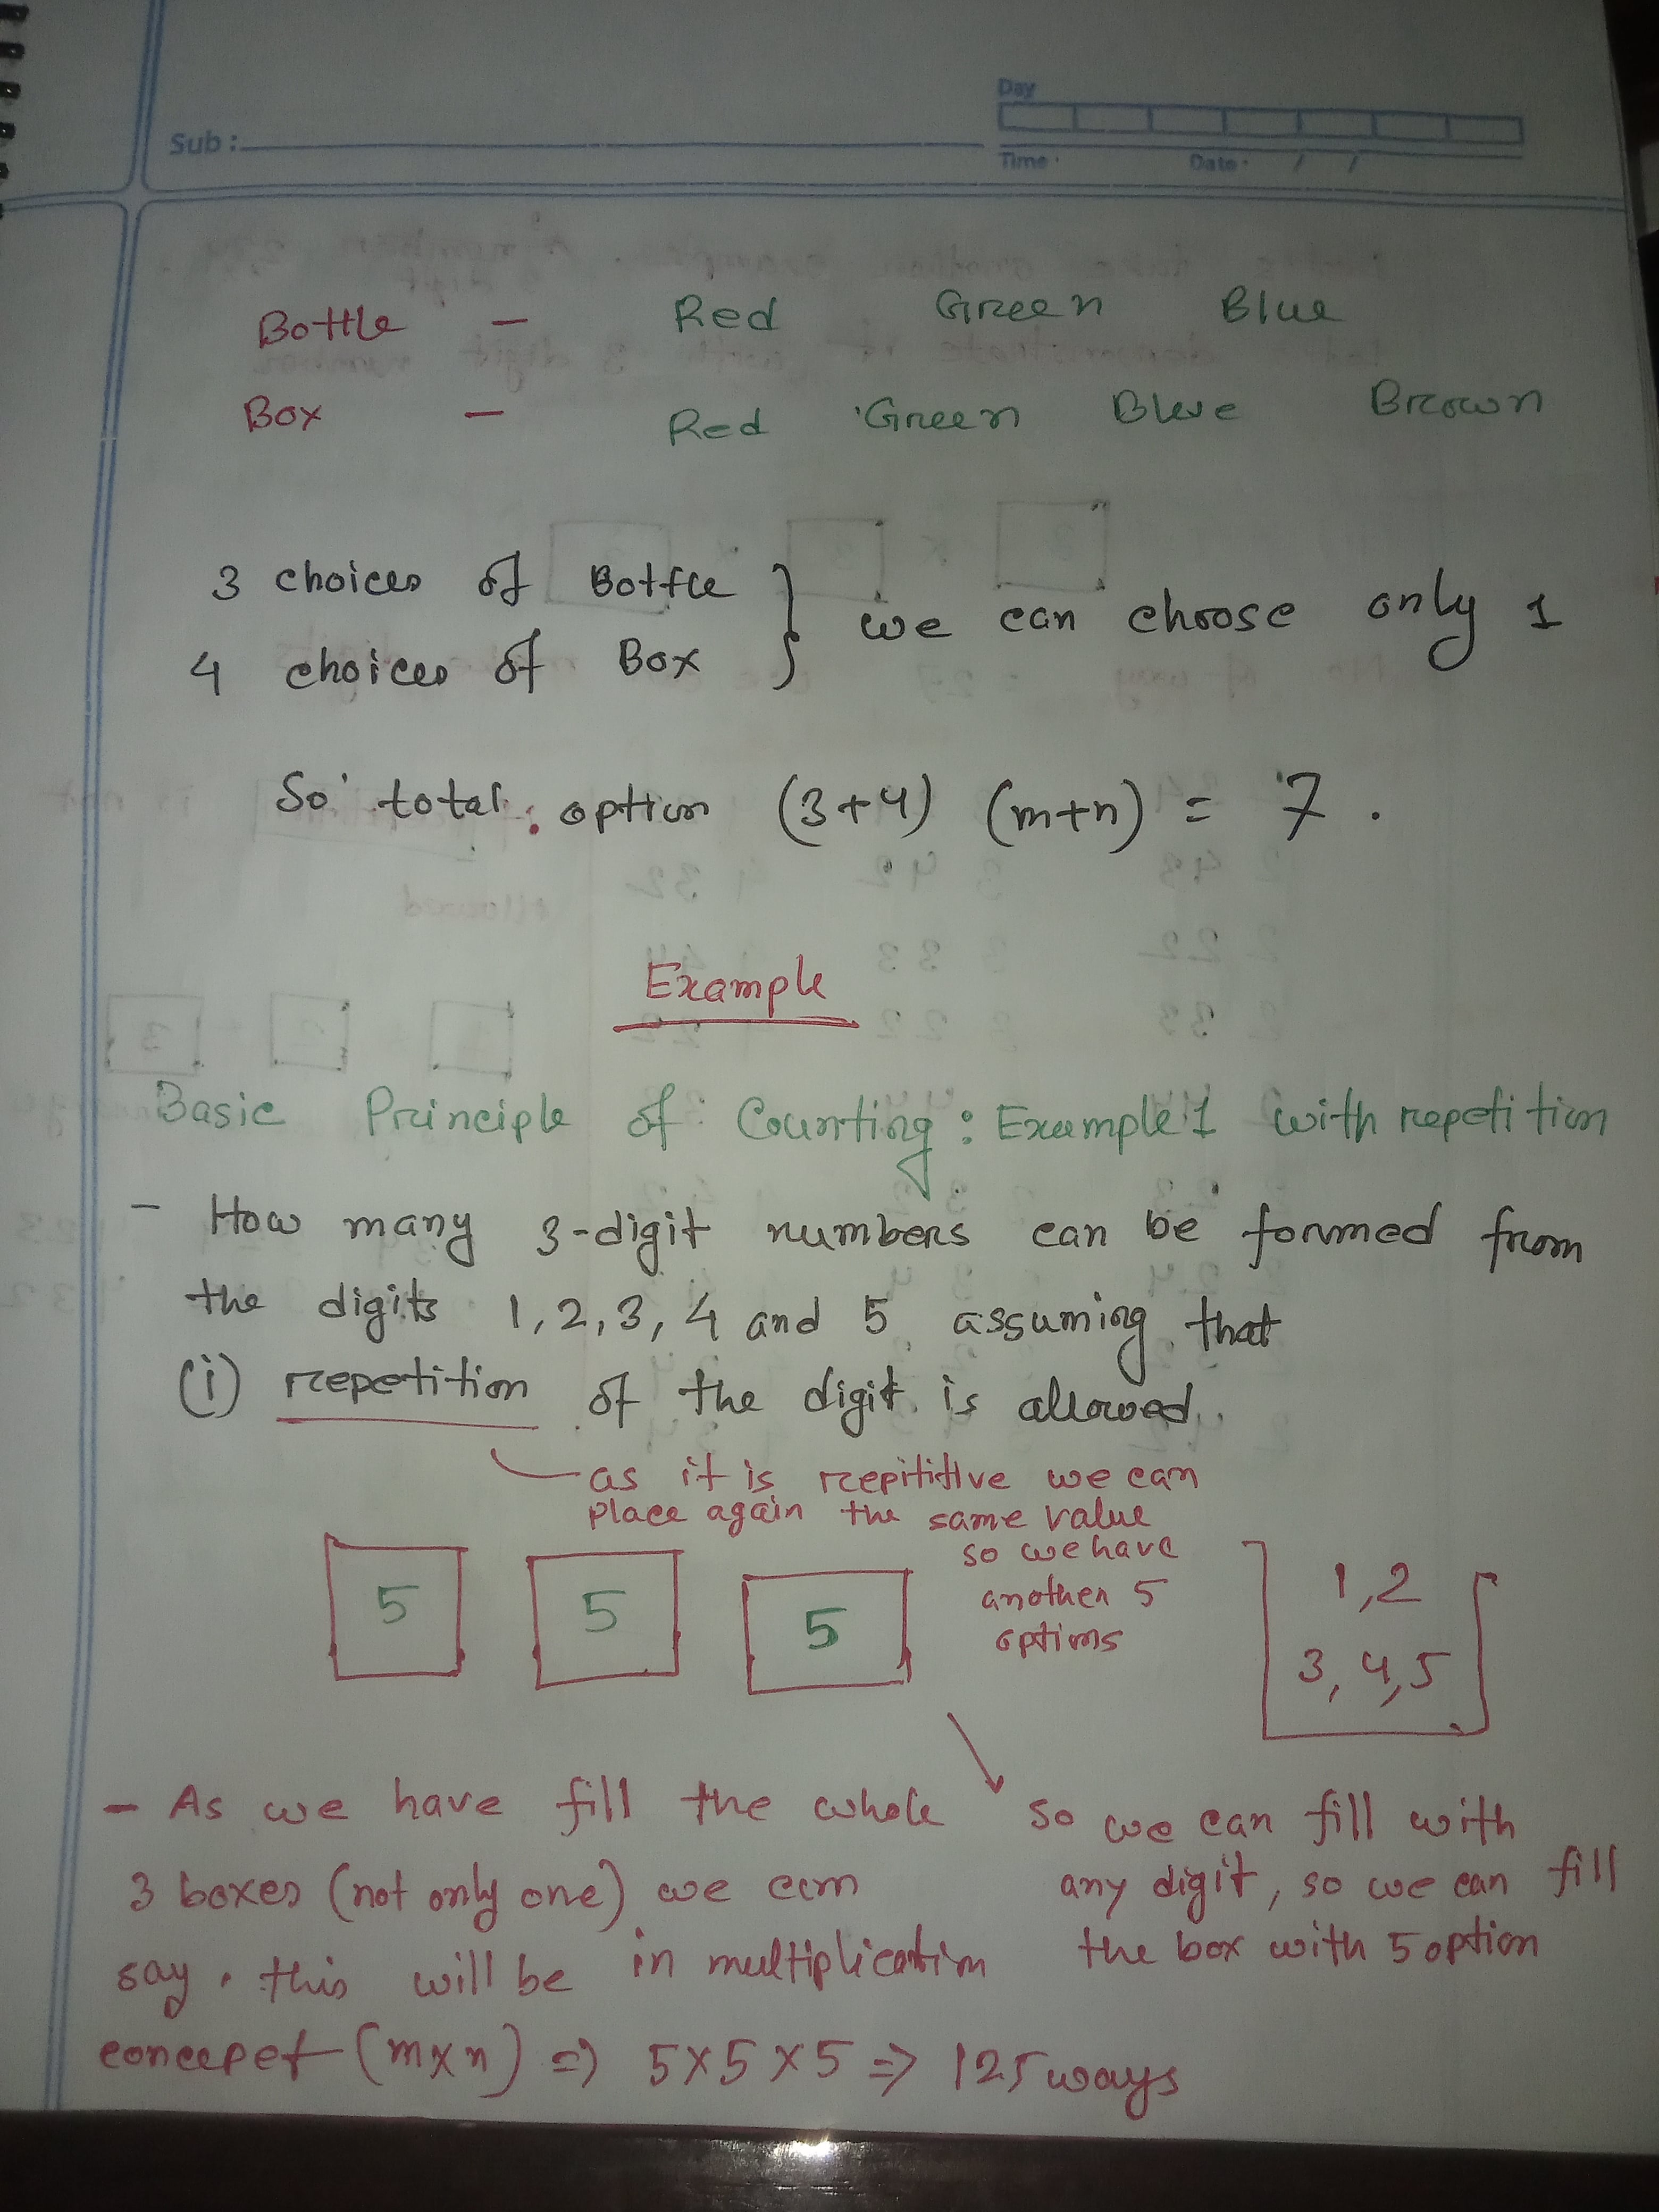 Day
Sub :
Time · Date · / /
Bottle - Red Green Blue
Box - Red Green Blue Brown
3 choices of Bottle
4 choices of Box } we can choose only 1
So total option (3+4) (m+n) = 7 .
Example
Basic Principle of Counting : Example 1 with repetition
- How many 3-digit numbers can be formed from
the digits 1, 2, 3, 4 and 5 assuming that
(i) repetition of the digit is allowed.
as it is repititive we can
place again the same value
so we have
another 5
options
5 5 5
1,2
3, 4,5
- As we have fill the whole
3 boxes (not only one) we can
say. this will be in multiplication
concepet (m×n) => 5×5×5 => 125 ways
So we can fill with
any digit, so we can fill
the box with 5 option